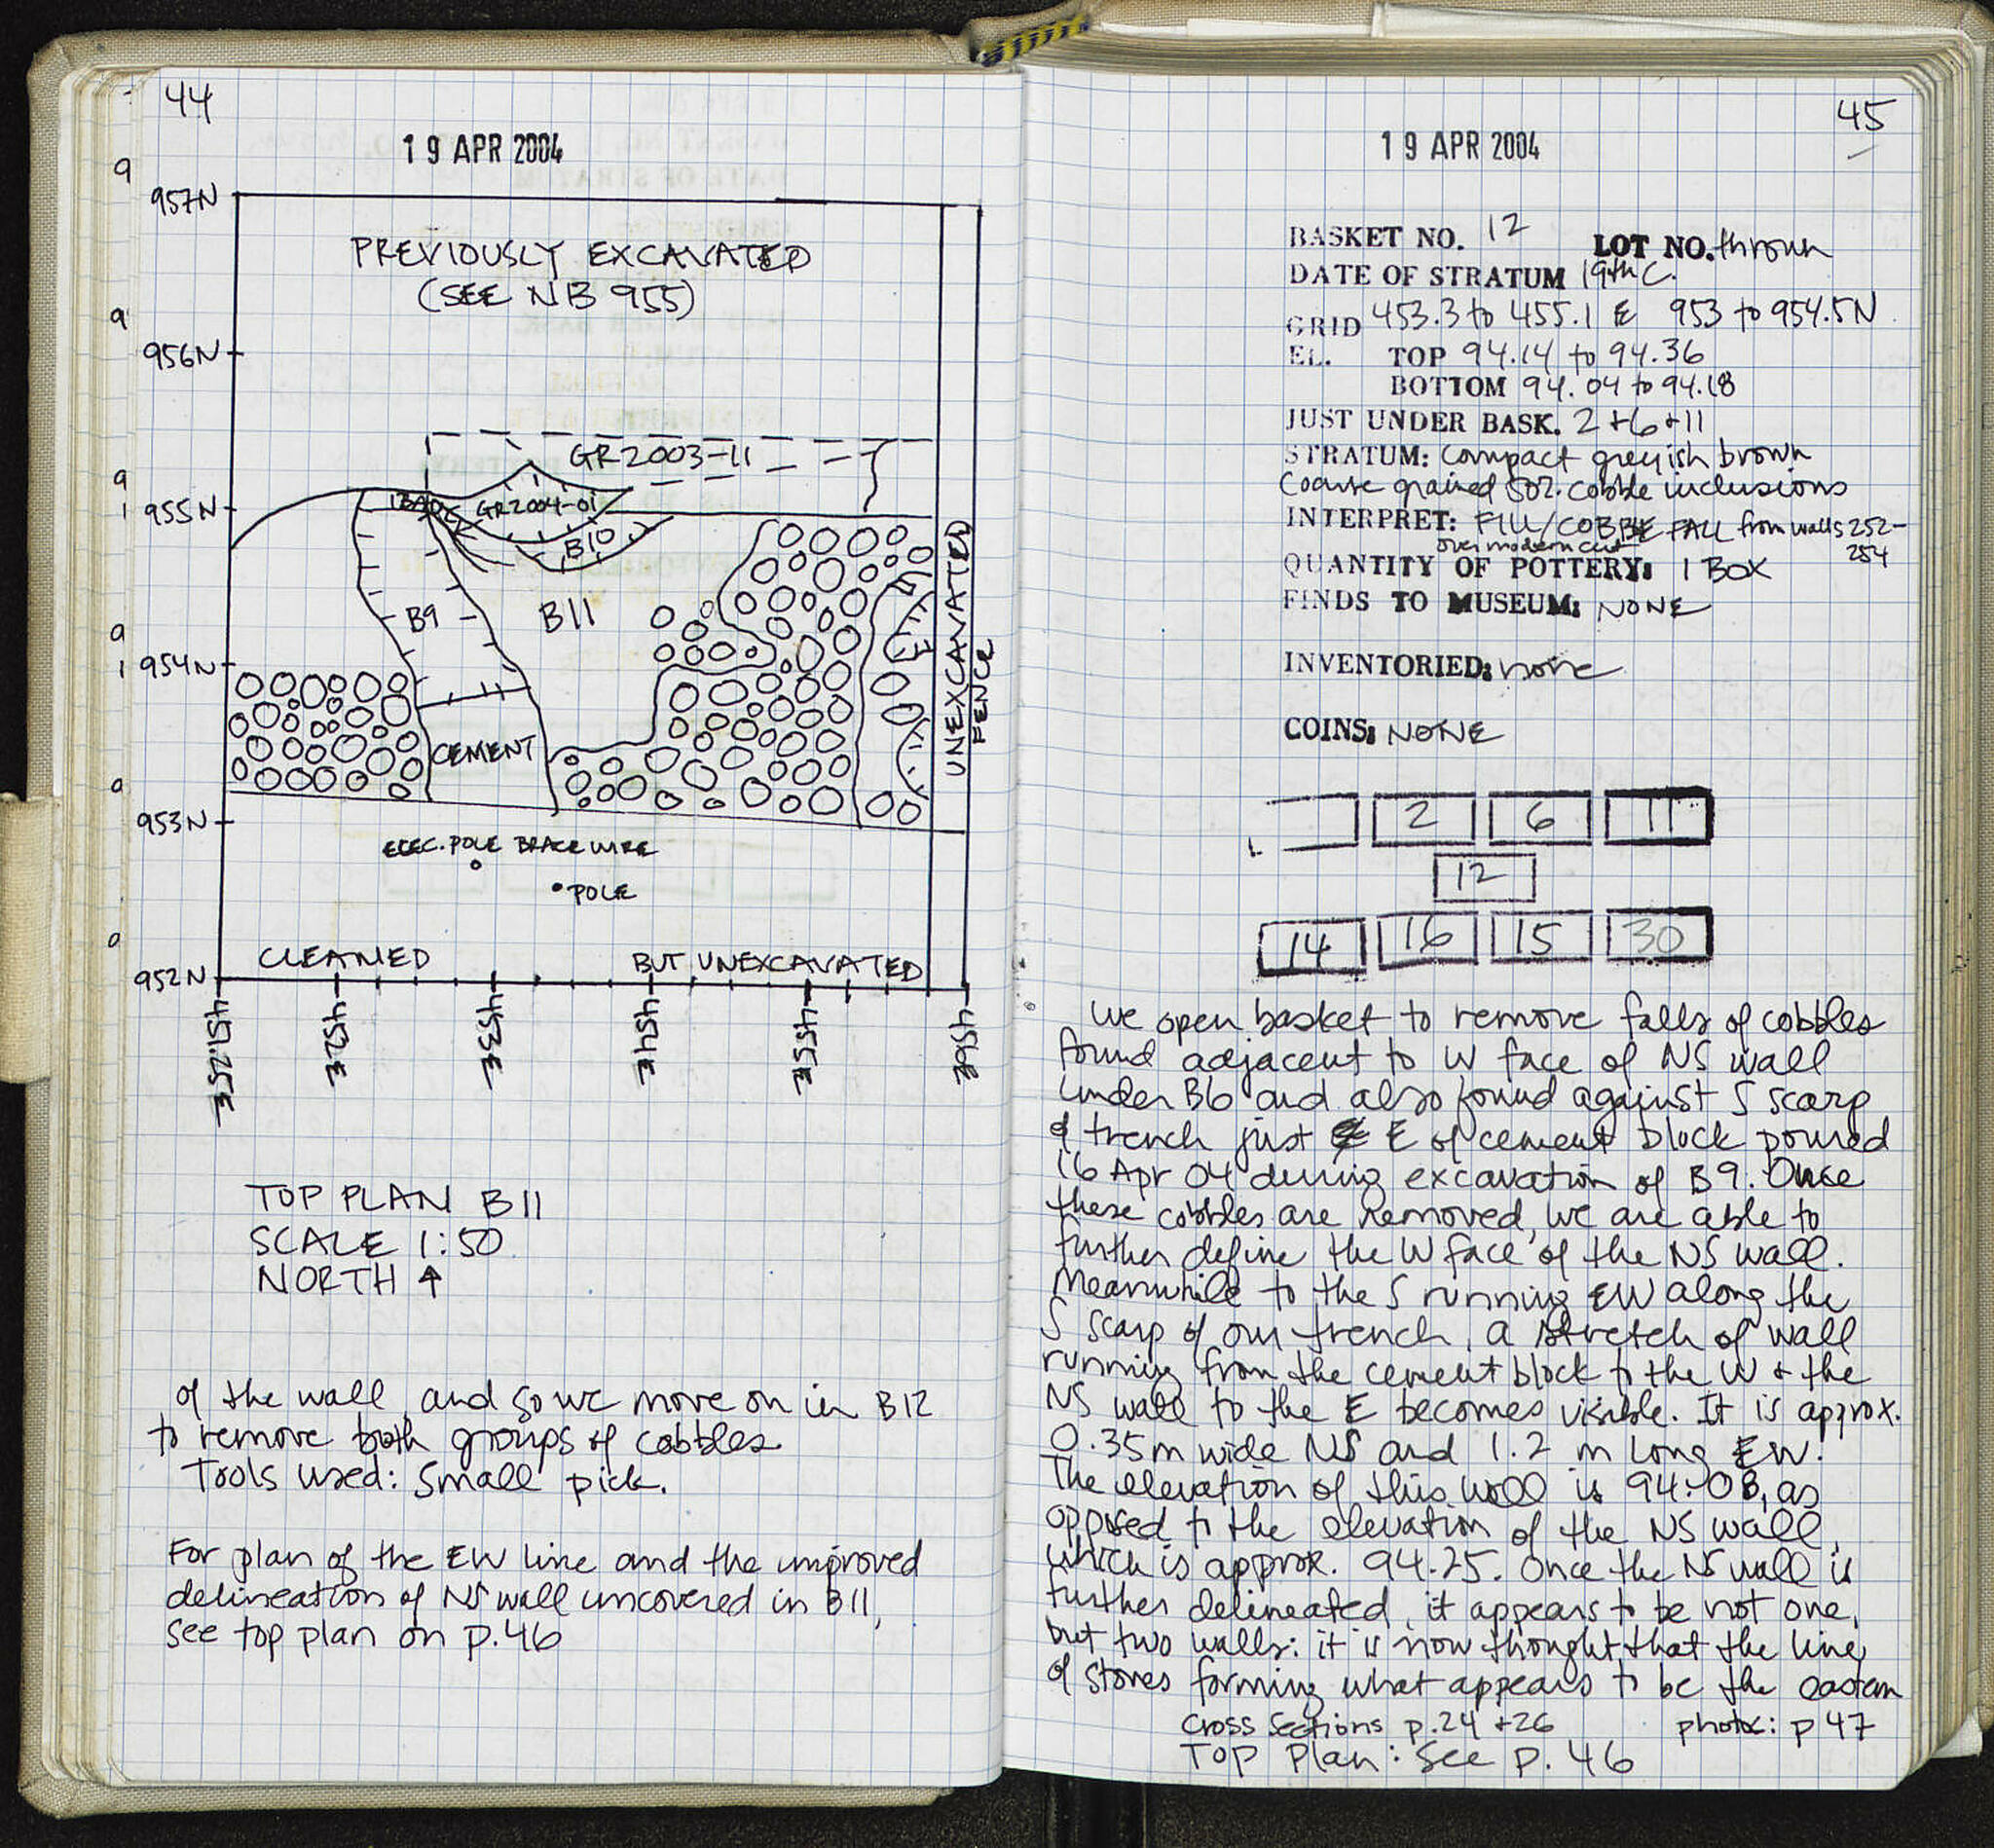 44
19 APR 2004
957N
PREVIOUSLY EXCAVATED
(SEE NB 955)
956N
GR2003-11
955N
GR2004-01
B10
B9
B11
954N
UNEXCAVATED
FENCE
CEMENT
953N
ELEC. POLE BRACE WIRE
POLE
CLEANED BUT UNEXCAVATED
952N
452E
453E
454E
455E
456E
TOP PLAN B11
SCALE 1:50
NORTH ↑
of the wall, and so we move on in B12
to remove both groups of cobbles.
Tools used: small pick.
For plan of the EW line and the improved
delineation of NS wall uncovered in B11,
see top plan on p.46
45
19 APR 2004
BASKET NO. 12 LOT NO. thrown
DATE OF STRATUM 19th C.
GRID 453.3 to 455.1 E 953 to 954.5N
EL. TOP 94.14 to 94.36
BOTTOM 94.04 to 94.18
JUST UNDER BASK. 2+6+11
STRATUM: compact greyish brown
coarse grained 50% cobble inclusions
INTERPRET: FILL/COBBLE FALL from walls 252-
254
over modern cut
QUANTITY OF POTTERY: 1 BOX
FINDS TO MUSEUM: NONE
INVENTORIED: none
COINS: NONE
2 6 11
12
14 16 15 30
We open basket to remove falls of cobbles
found adjacent to W face of NS wall
under B6 and also found against S scarp
of trench just E of cement block poured
16 Apr 04 during excavation of B9. Once
these cobbles are removed, we are able to
further define the W face of the NS wall.
Meanwhile to the S running EW along the
S scarp of our trench, a stretch of wall
running from the cement block to the W + the
NS wall to the E becomes visible. It is approx.
0.35m wide NS and 1.2 m long EW.
The elevation of this wall is 94.08, as
opposed to the elevation of the NS wall,
which is approx. 94.25. Once the NS wall is
further delineated, it appears to be not one,
but two walls: it is now thought that the line
of stones forming what appears to be the eastern
cross sections p.24 +26 photos: p 47
TOP Plan: see p. 46